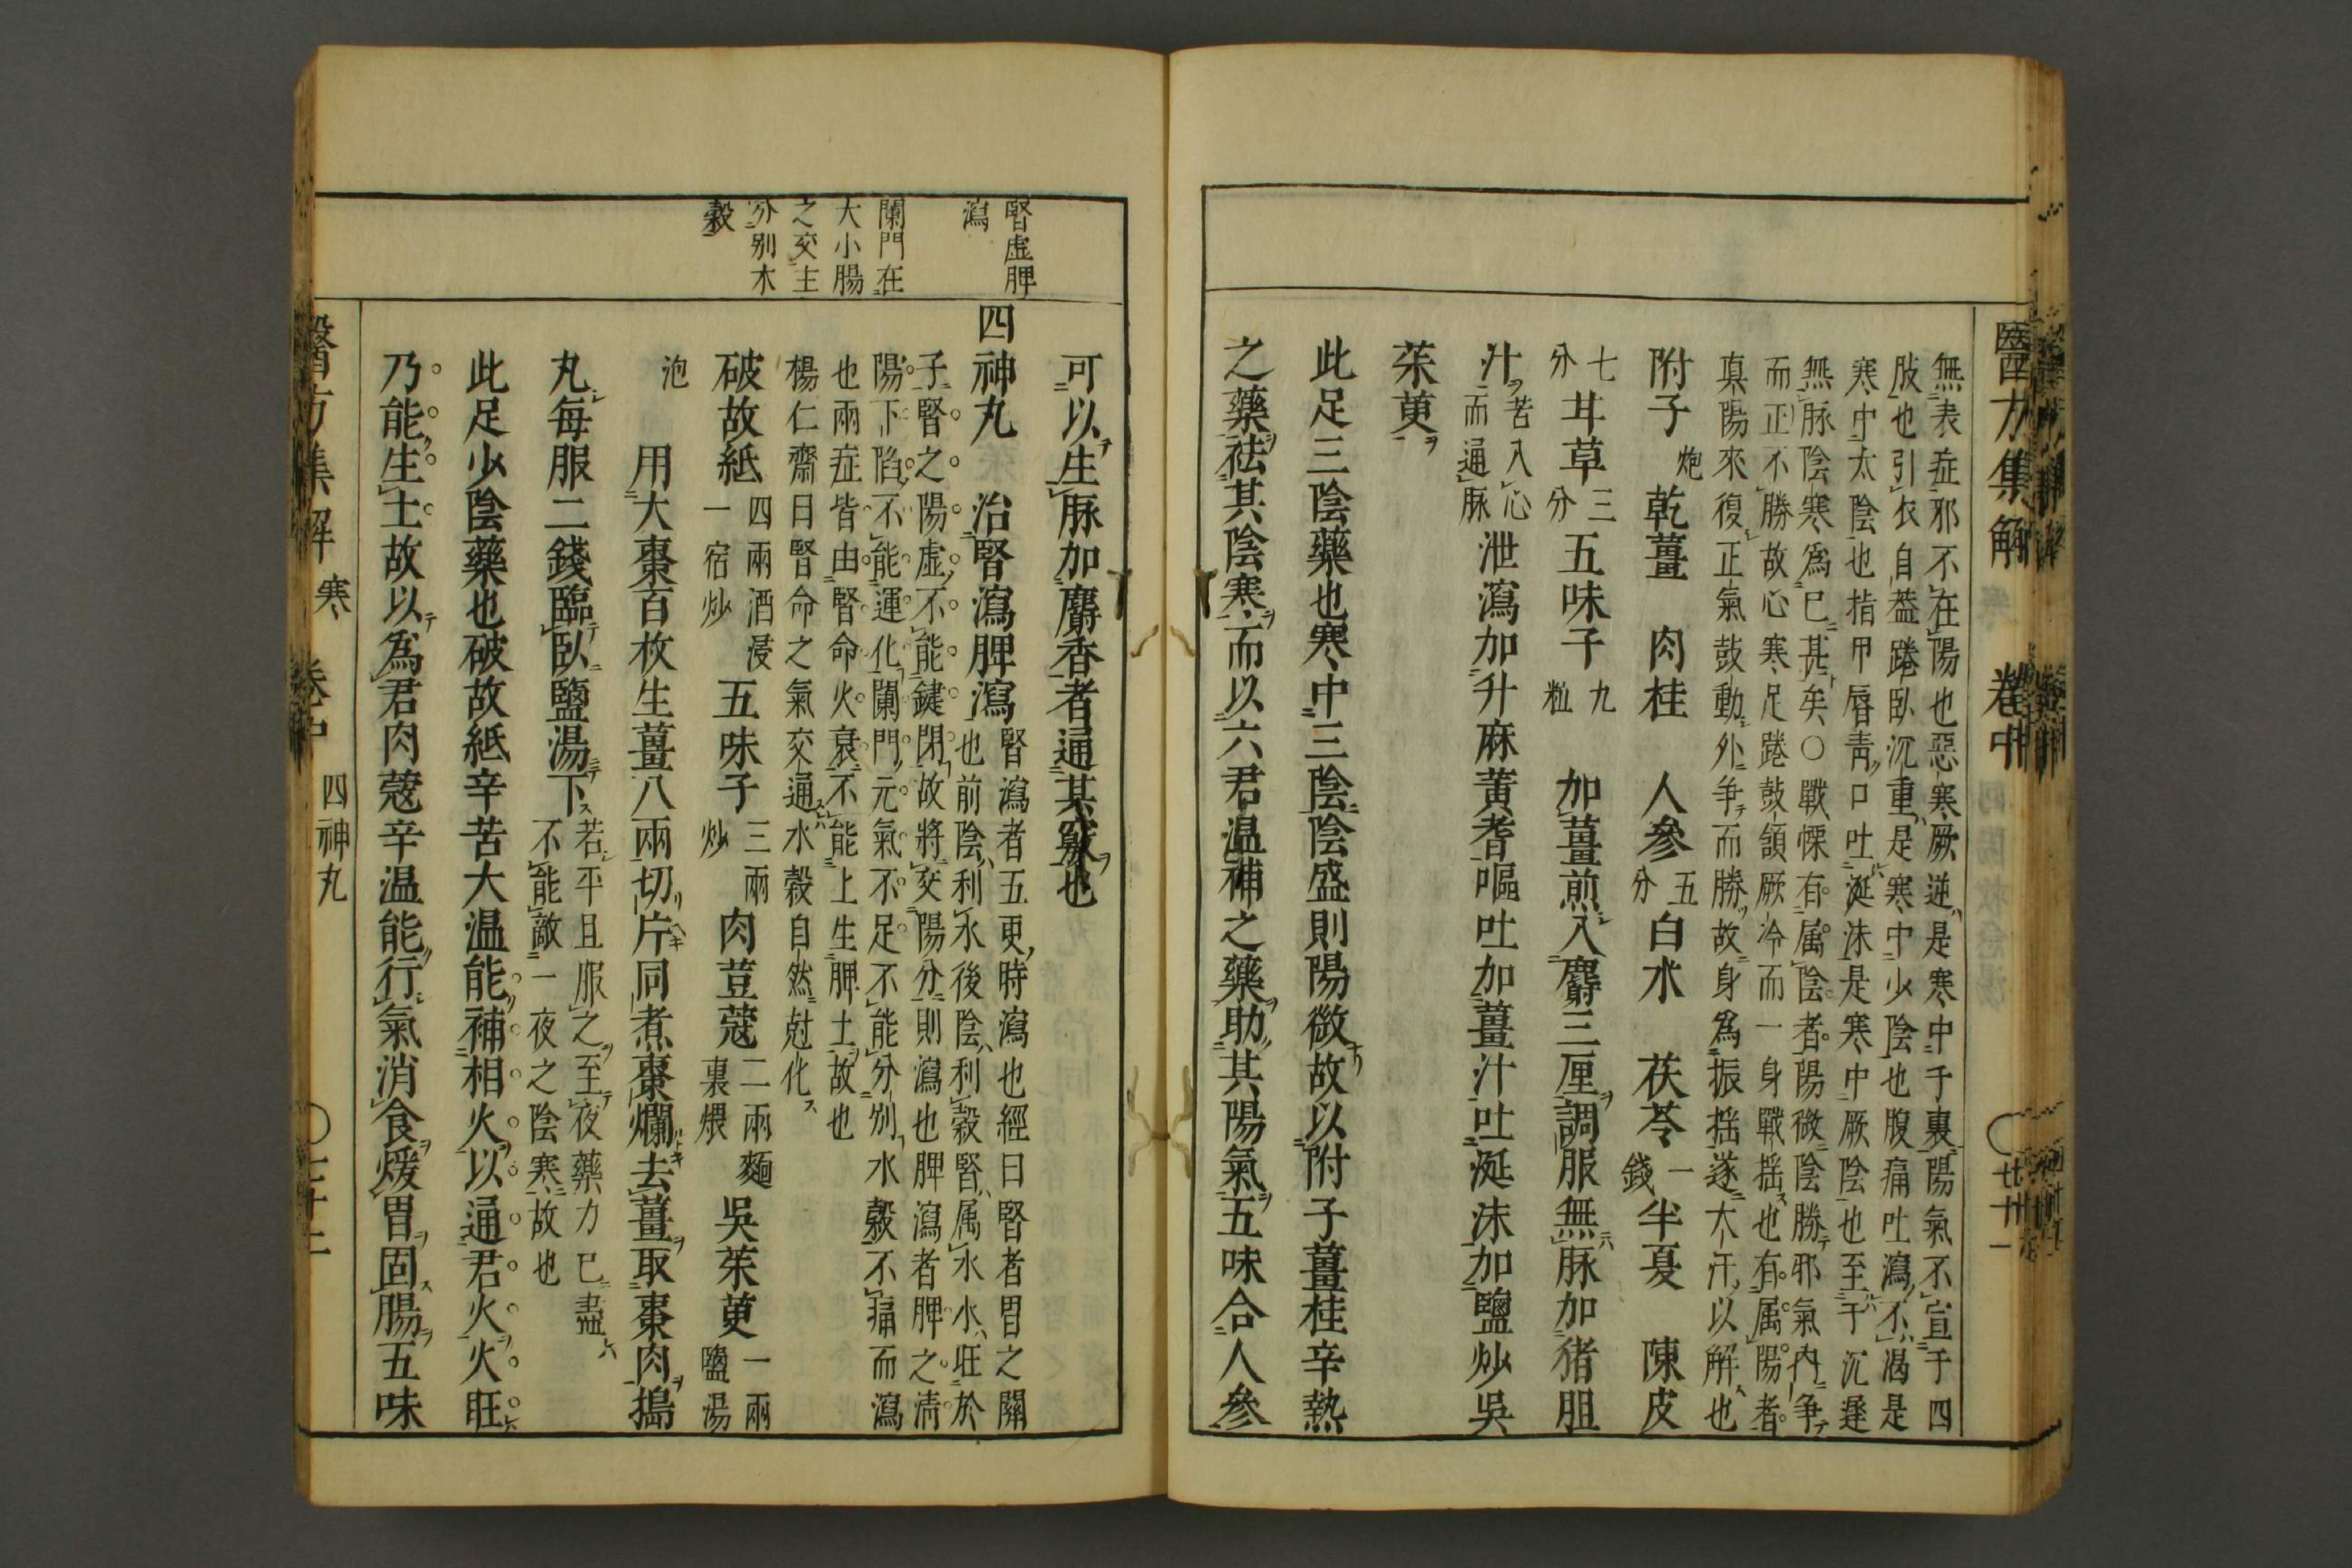 醫方集解 卷中 廿一
無表症邪不在陽也惡寒厥逆是寒中于裏陽氣不宣于四
肢也引衣自葢踡臥沉重是寒中少陰也腹痛吐瀉不渴是
寒中太陰也指甲唇靑口吐涎沫是寒中厥陰也至于沉遲
無脉陰寒爲已甚矣○戰慄有属陰者陽微陰勝邪氣內爭
而正不勝故心寒足踡鼓頷厥冷而一身戰揺也有属陽者
真陽來復正氣鼓動外爭而勝故身爲振揺遂大汗以解也
附子炮 乾薑 肉桂 人參五分 白朮 茯苓一錢 半夏 陳皮
七分 甘草三分 五味子九粒 加薑煎入麝三厘調服無脉加猪胆
汁苦入心而通脉 泄瀉加升麻黃耆嘔吐加薑汁吐涎沫加鹽炒吳
茱萸
此足三陰藥也寒中三陰陰盛則陽微故以附子薑桂辛熱
之藥祛其陰寒而以六君温補之藥助其陽氣五味合人參
可以生脉加麝香者通其竅也
腎虚脾
瀉
四神丸 治腎瀉脾瀉腎瀉者五更時瀉也經曰腎者胃之關
也前陰利水後陰利穀腎属水水旺於
子腎之陽虚不能鍵閉故將交陽分則瀉也脾瀉者脾之清
陽下陷不能運化闌門元氣不足不能分別水穀不痛而瀉
也兩症皆由腎命火衰不能上生脾土故也
楊仁齋曰腎命之氣交通水穀自然尅化
闌門在
大小腸
之交主
分别水
穀
破故紙四兩酒浸一宿炒 五味子三兩炒 肉荳蔻二兩麵裹煨 吳茱萸一兩鹽湯
泡 用大棗百枚生薑八兩切片同煮棗爛去薑取棗肉搗
丸每服二錢臨臥鹽湯下若平旦服之至夜藥力已盡
不能敵一夜之陰寒故也
此足少陰藥也破故紙辛苦大温能補相火以通君火火旺
乃能生土故以爲君肉蔻辛温能行氣消食煖胃固腸五味
醫方集解 寒 卷中 四神丸